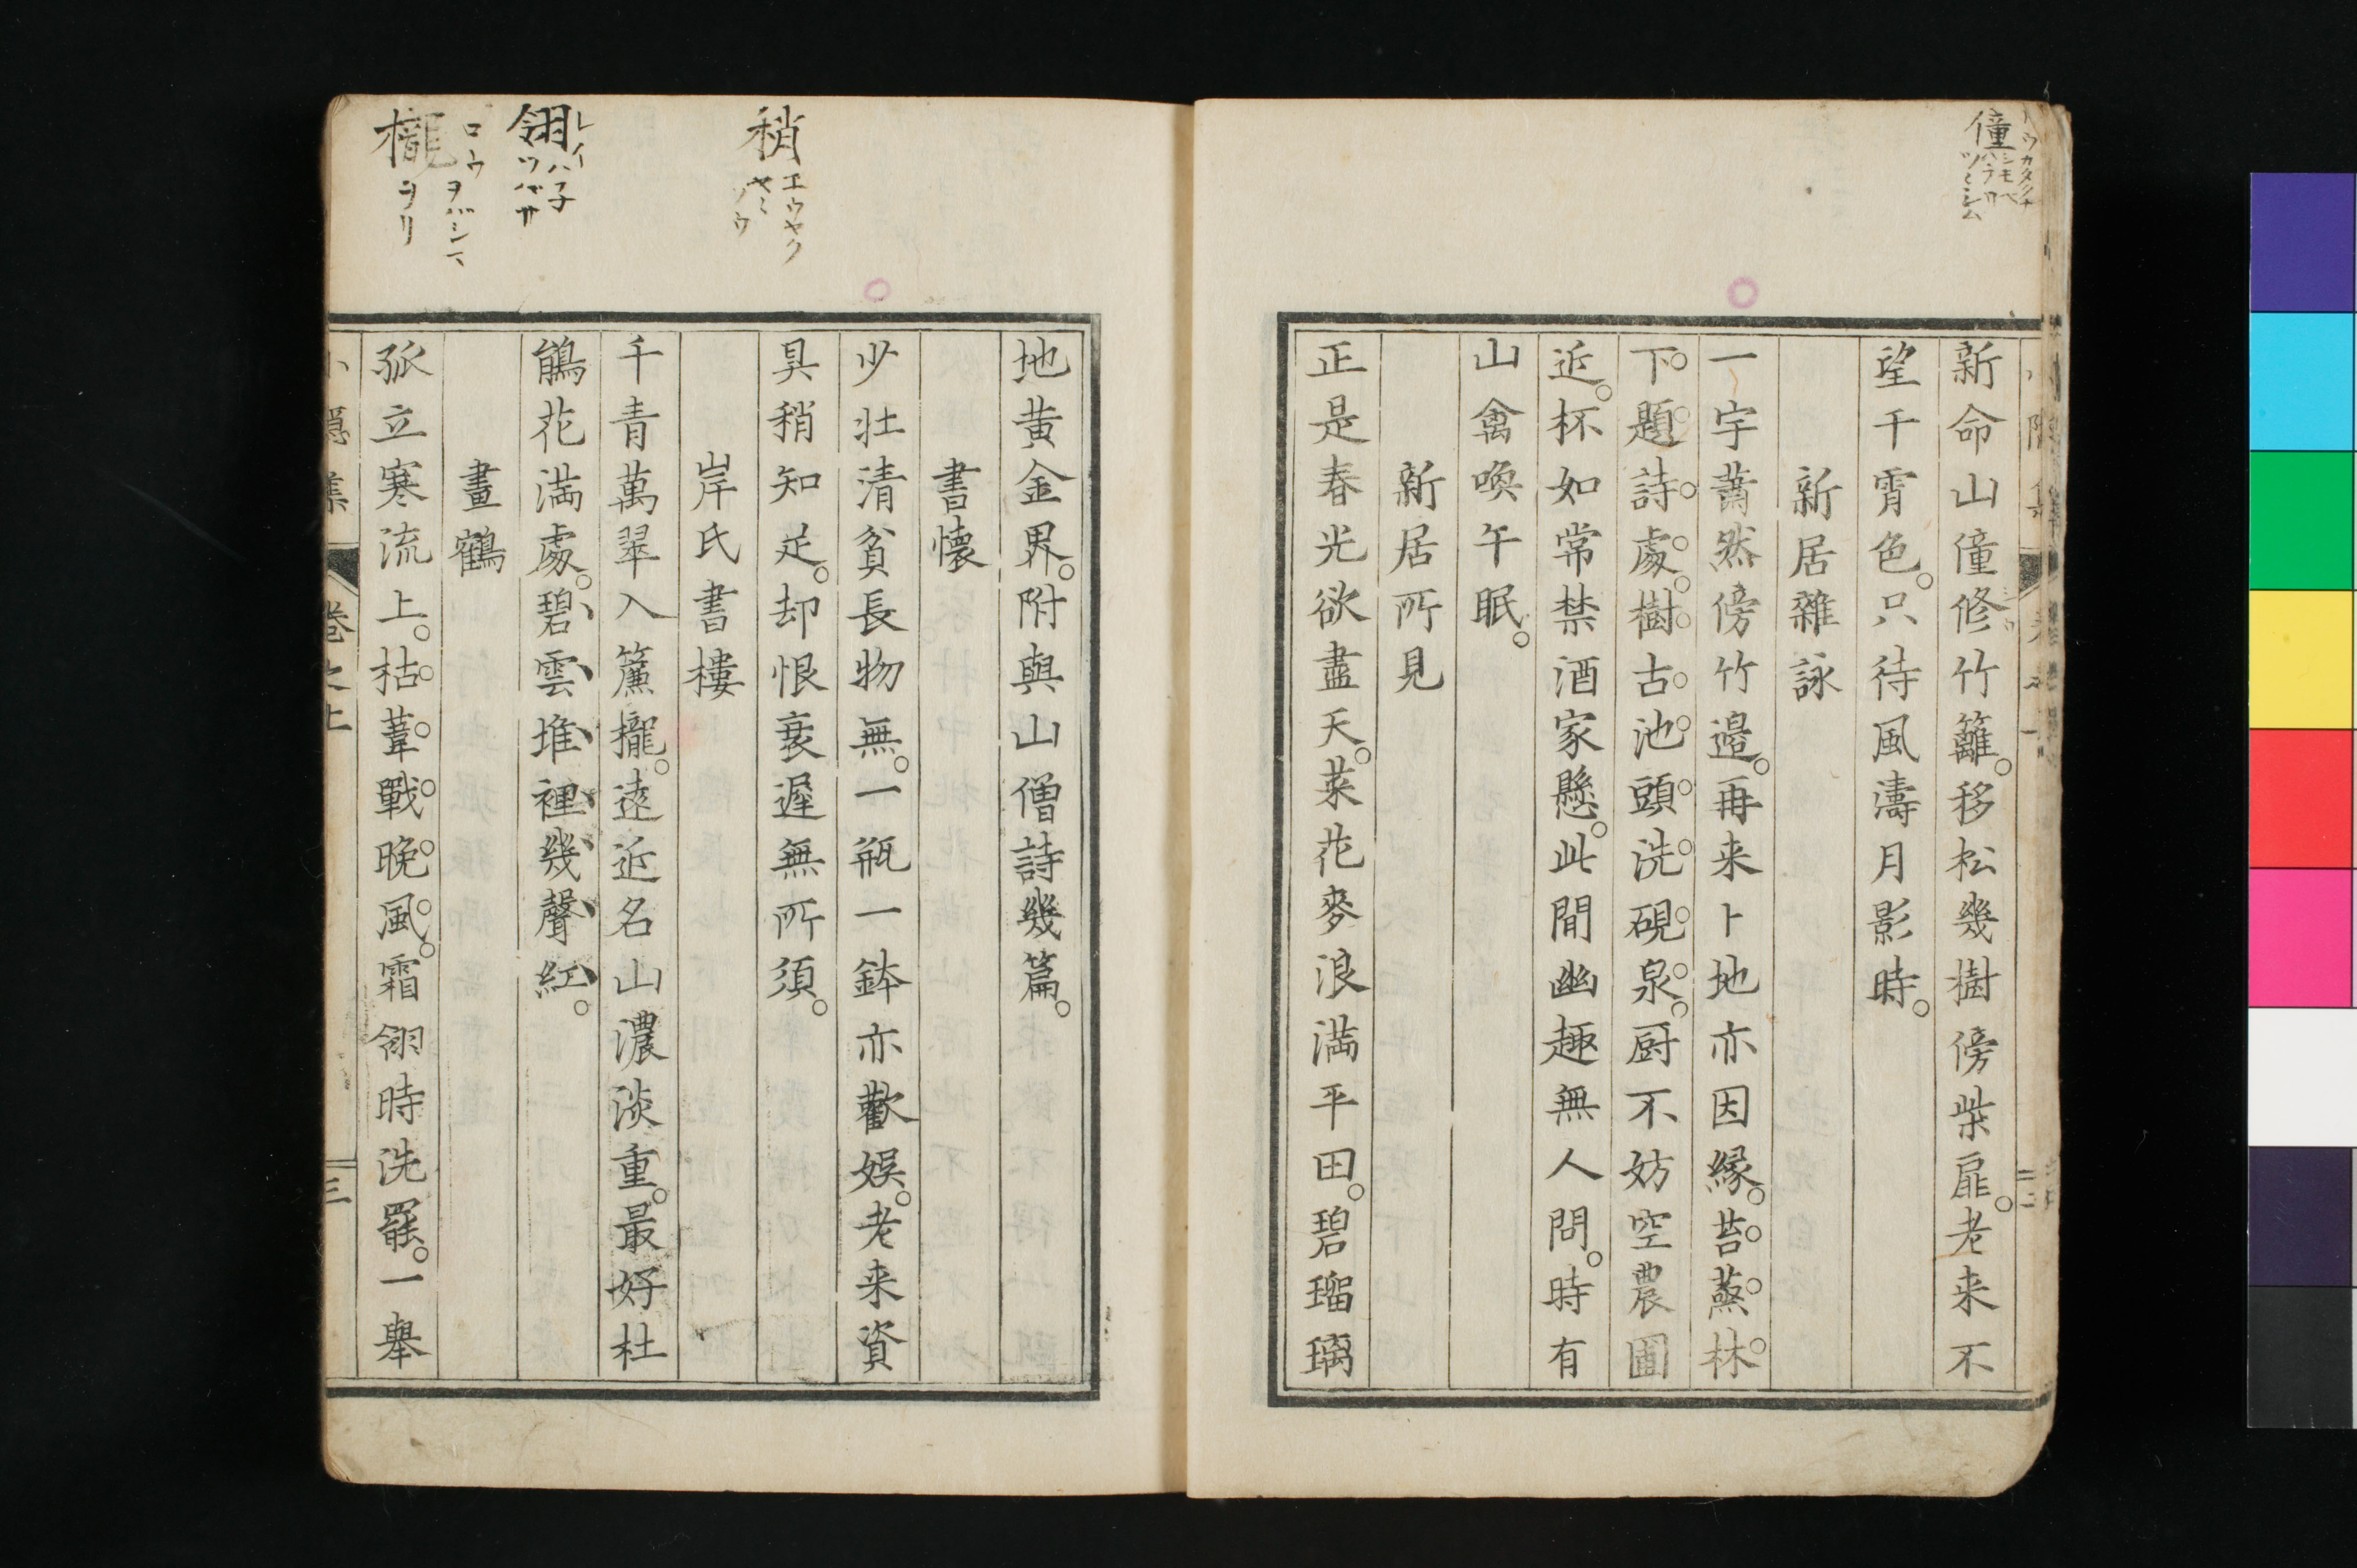 僮
新命山僮修竹籬。移松幾樹傍柴扉。老来不
望千霄色。只待風濤月影時。
新居雜詠
一宇蕭然傍竹邉。再来卜地亦因縁。苔蒸林
下題詩處。樹古池頭洗硯泉。厨不妨空農圃
近。杯如常禁酒家懸。此間幽趣無人問。時有
山禽喚午眠。
新居所見
正是春光欲盡天。菜花麥浪満平田。碧瑠璃
稍
エウヤク
翎
レイ
ハ子
ツバサ
櫳
ロウ
ヲリ
地黄金界。附與山僧詩幾篇。
書懷
少壮清貧長物無。一瓶一鉢亦歡娯。老来資
具稍知足。却恨衰遲無所須。
岸氏書樓
千青萬翠入簾櫳。遠近名山濃淡重。最好杜
鵑花満處。碧雲堆裡幾聲紅。
畫鶴
孤立寒流上。枯葦戰晩風。霜翎時洗罷。一舉
小隱集 卷之上 三